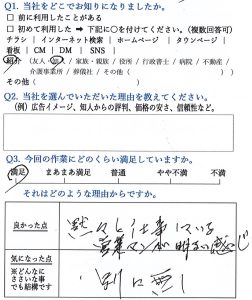 Q1. 当社をどこでお知りになりましたか。
□ 前に利用したことがある
□ 初めて利用した ➡ 下記に○を付けてください。(複数回答可)
チラシ | インターネット検索 | ホームページ | タウンページ
看板 | CM | DM | SNS |
紹介 (友人・知人・家族・親族 / 役所 / 行政書士 / 病院 / 不動産
介護事業所 / 葬儀社 / その他( ) )
その他( )
Q2. 当社を選んでいただいた理由を教えてください。
(例) 広告イメージ、知人からの評判、価格の安さ、信頼性など。
Q3. 今回の作業にどのくらい満足していますか。
満足 まあまあ満足 普通 やや不満 不満
それはどのような理由からですか。
良かった点
黙々と仕事している
営業マンが明るい感じ
気になった点
※どんなに
ささいな事
でも結構です
別に無し